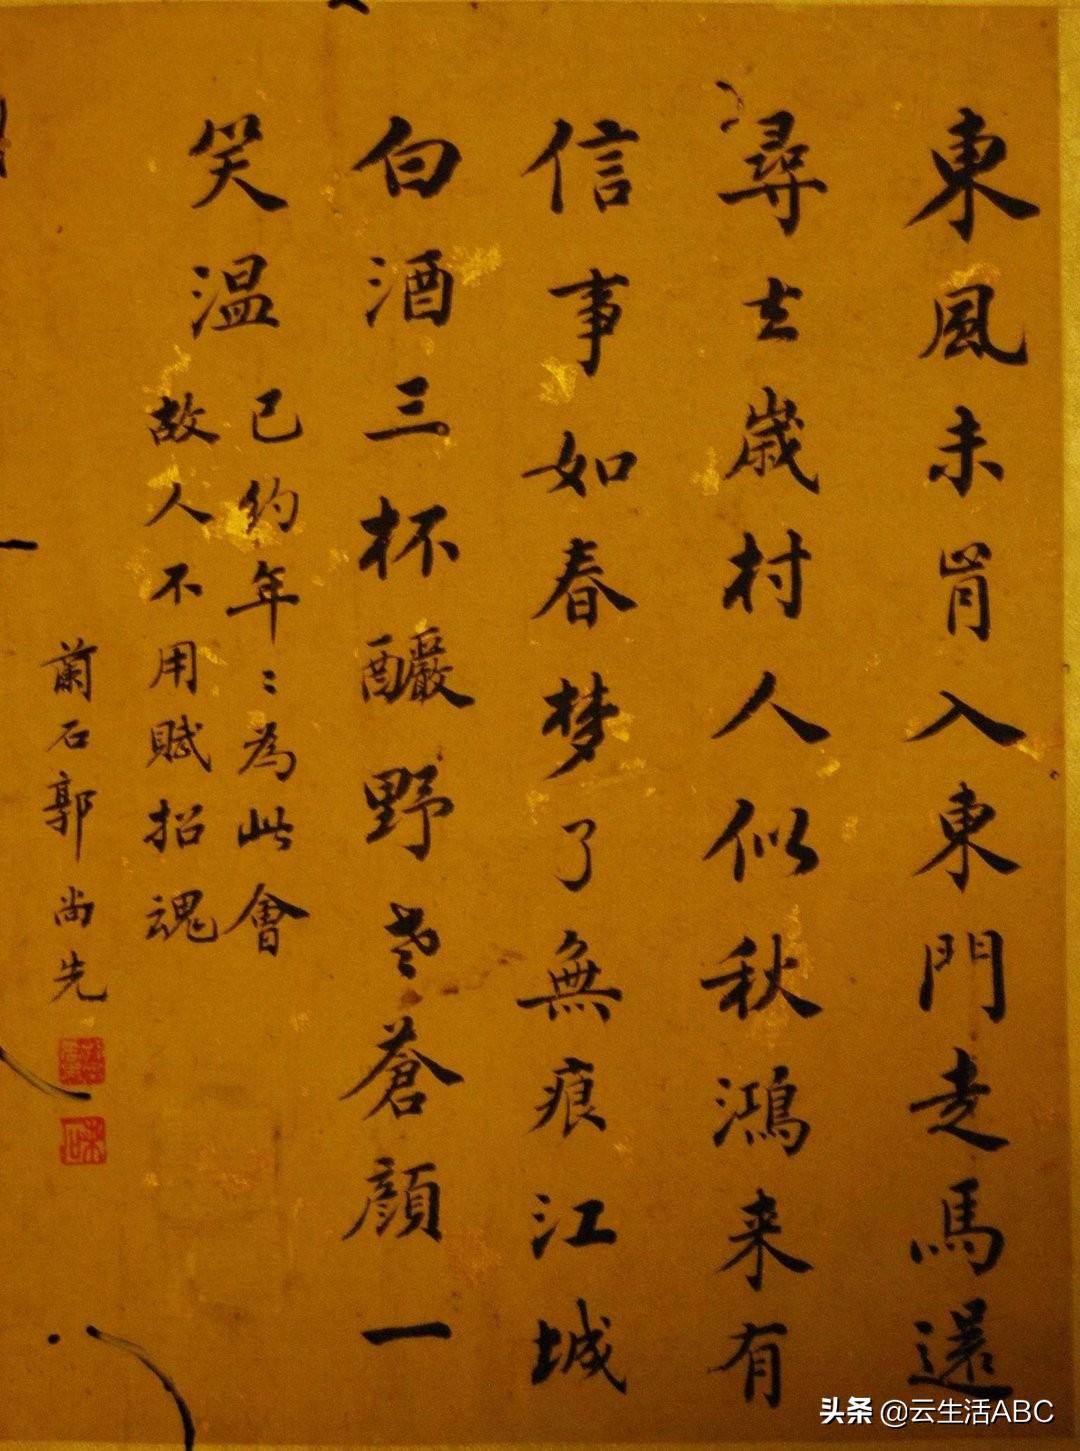 東風未肯入東門走馬還
尋去歲村人似秋鴻来有
信事如春梦了無痕江城
白酒三杯釅野老蒼顏一
笑温
已約年〻為此會
故人不用賦招魂
蘭石郭尚先
头条 @云生活ABC